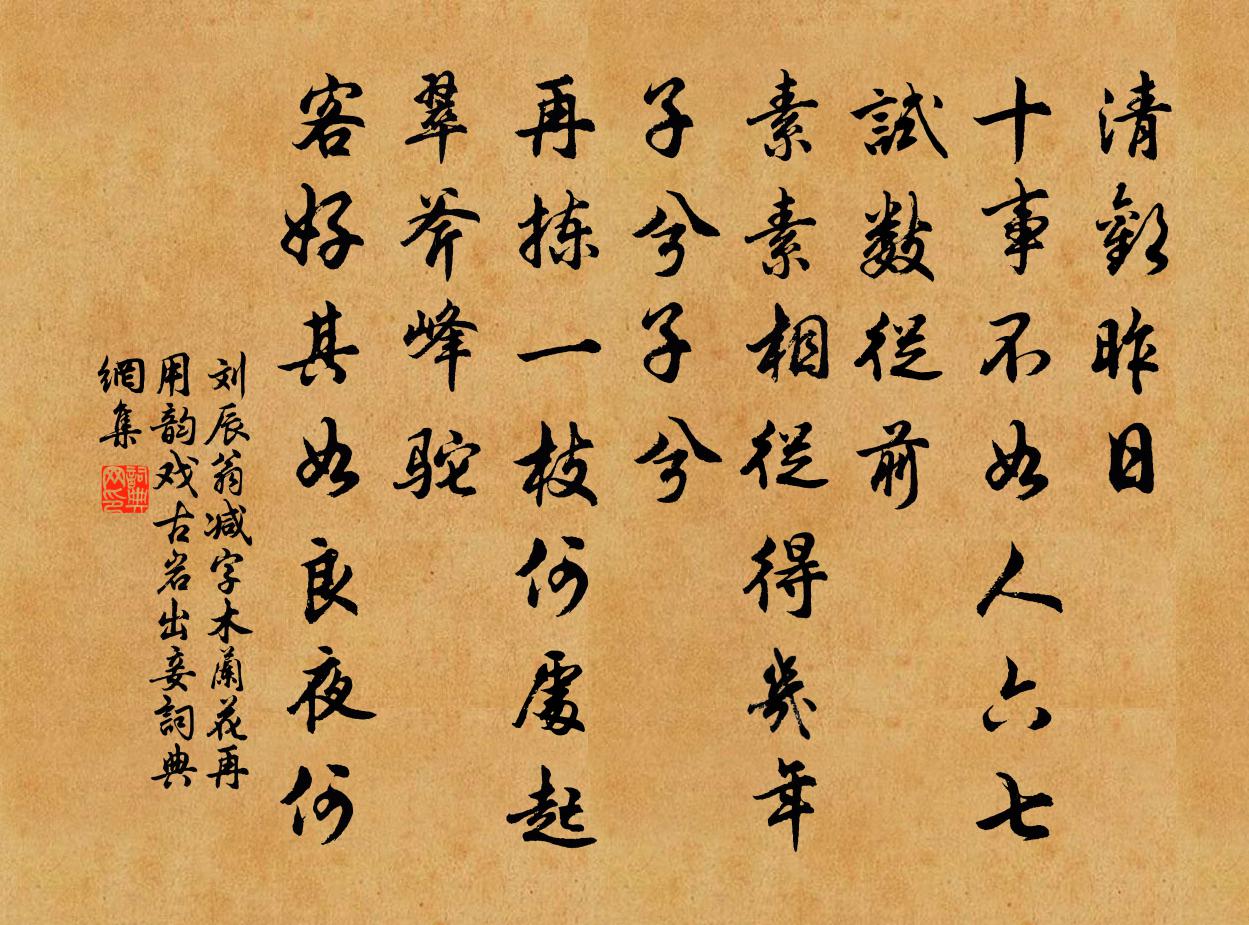 清歡昨日
十事不如人六七
試數從前
素素相從得幾年
子兮子兮
再揀一枝何處起
翠斧峰駝
客好其如良夜何
刘辰翁减字木蘭花再
用韵戏古岩出妾詞典
網集
詞典网印